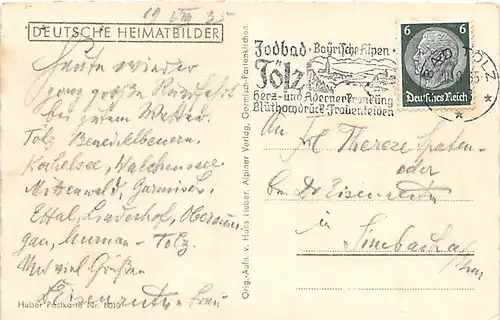 19 VIII 35
DEUTSCHE HEIMATBILDER
Heute wieder
große Rundfahrt
bei gutem Wetter.
Tölz Benediktbeuern.
Kochelsee, Walchensee
Mittenwald, Garmisch.
Ettal, Linderhof, Oberammer
gau, Murnau - Tölz.
Mit viel Grüßen
Frau
Huber Postkarte Nr.
Orig.-Aufn. v. Hans Huber, Alpiner Verlag, Garmisch-Partenkirchen.
Jodbad · Bayrische Alpen ·
Tölz
Herz- und Adernerkrankung
Blüthochdruck-Frauenleiden
6 6
Deutsches Reich
BAD TÖLZ
An Frl Therese
oder
bei Dr
in Simbach a/
Inn